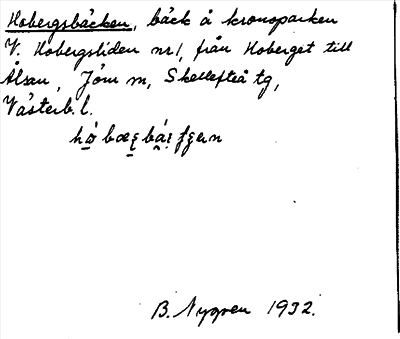 Hobergsbäcken, bäck å kronoparken
V. Hobergsliden nr 1, från Hoberget till
Ålsån, Jörn sn, Skellefteå tg,
Västerb. l.
B. Nygren 1932.